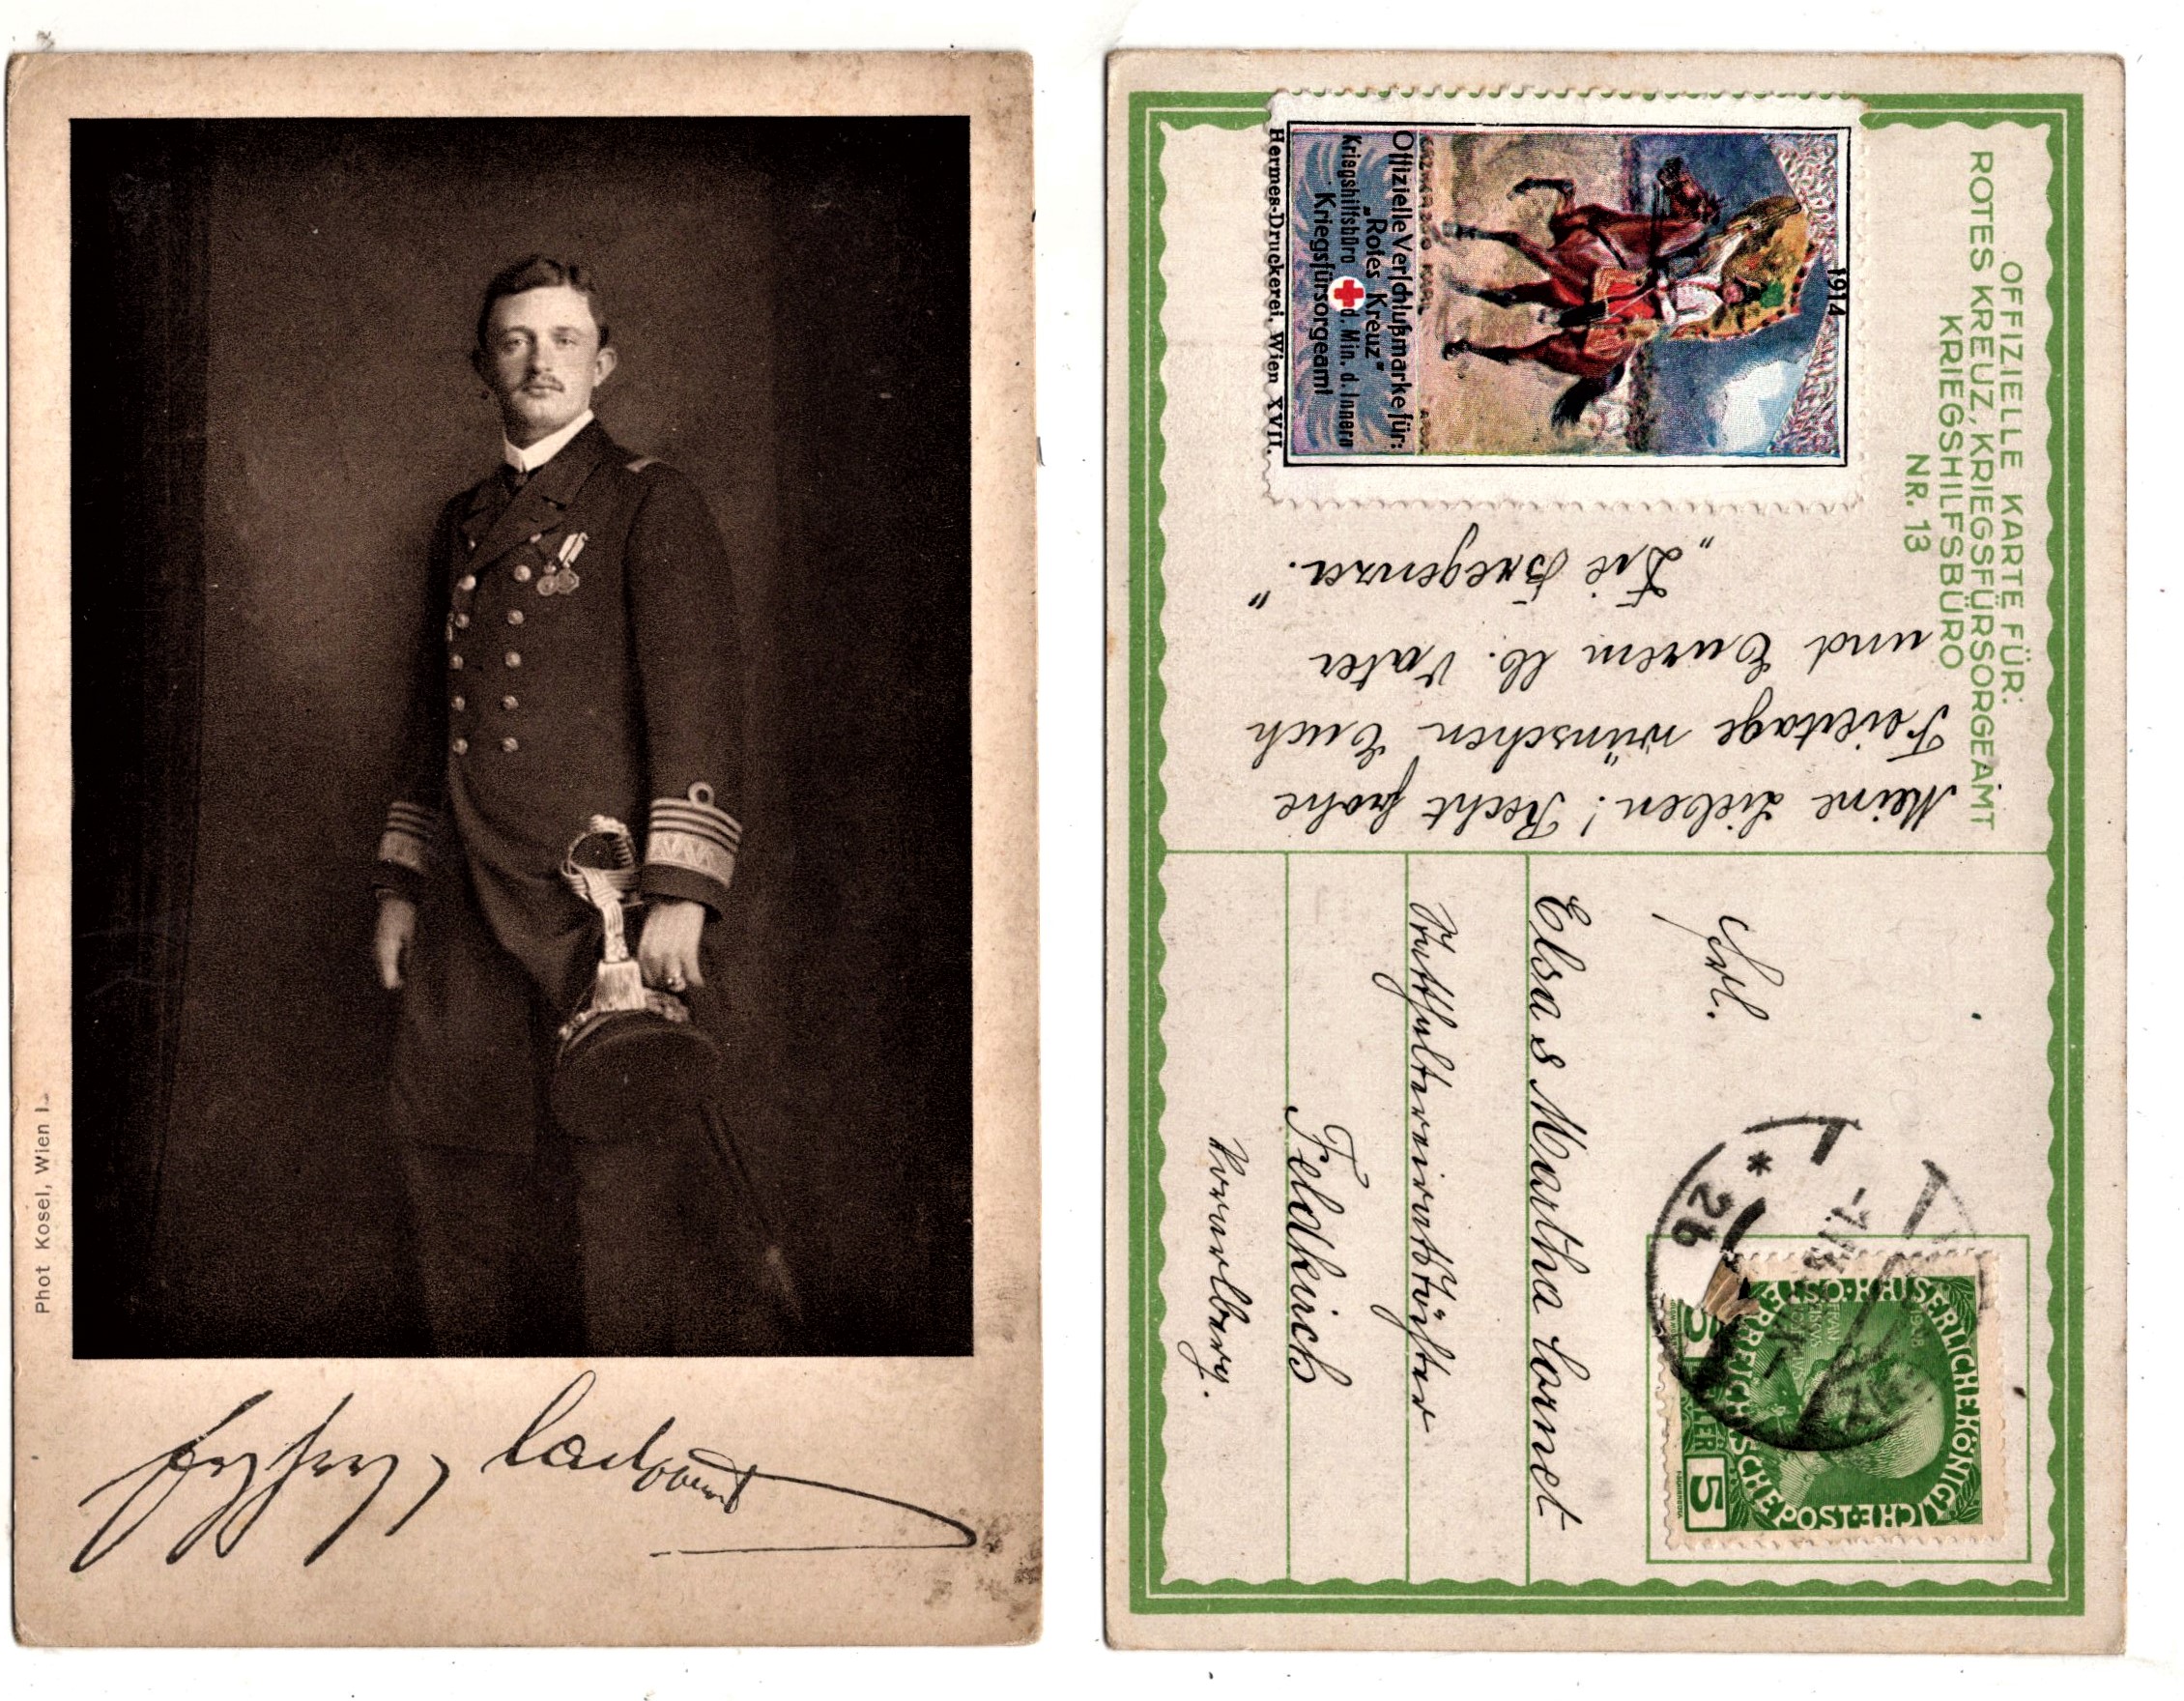 Phot Kosel, Wien I.
OFFIZIELLE KARTE FÜR:
ROTES KREUZ, KRIEGSFÜRSORGEAMT
KRIEGSHILFSBÜRO
NR. 13
1914
Offizielle Verschlußmarke für:
„Rotes Kreuz"
Kriegshilfsbüro d. Min. d. Innern
Kriegsfürsorgeamt
Hermes-Druckerei, Wien XVII.
Meine Lieben! Recht frohe
Feiertage wünschen Euch
und Eurem lb. Vater
„Die Bregenzer."
Frl.
Elsa & Martha Cornet
Statthaltereiratstöchter
Feldkirch
Vorarlberg.
26
KAISERLICHE KÖNIGLICHE POST
ÖSTERREICHISCHE
1908
5 5